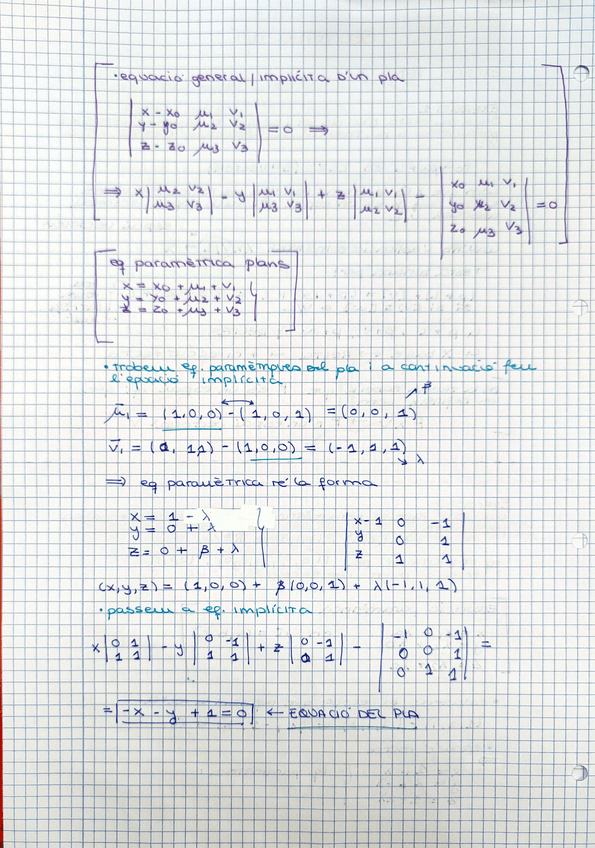 · equació general / implícita d'un pla
| x - x0 μ1 v1 |
| y - y0 μ2 v2 | = 0 ⇒
| z - z0 μ3 v3 |
⇒ x | μ2 v2 ; μ3 v3 | - y | μ1 v1 ; μ3 v3 | + z | μ1 v1 ; μ2 v2 | - | x0 μ1 v1 ; y0 μ2 v2 ; z0 μ3 v3 | = 0
eq paramètrica plans
x = x0 + μ1 + v1
y = y0 + μ2 + v2
z = z0 + μ3 + v3
· trobem eq. paramètriques del pla i a continuació feu
l'equació implícita
μ̄1 = (1,0,0) - (1,0,1) = (0,0,1) ↗ β
v̄1 = (0,1,1) - (1,0,0) = (-1,1,1) ↘ λ
⇒ eq paramètrica té la forma
x = 1 - λ
y = 0 + λ
z = 0 + β + λ
| x-1 0 -1 |
| y 0 1 |
| z 1 1 |
(x,y,z) = (1,0,0) + β(0,0,1) + λ(-1,1,1)
· passem a eq. implícita
x | 0 1 ; 1 1 | - y | 0 -1 ; 1 1 | + z | 0 -1 ; 0 1 | - | -1 0 -1 ; 0 0 1 ; 0 1 1 | =
= -x - y + 1 = 0 ← EQUACIÓ DEL PLA